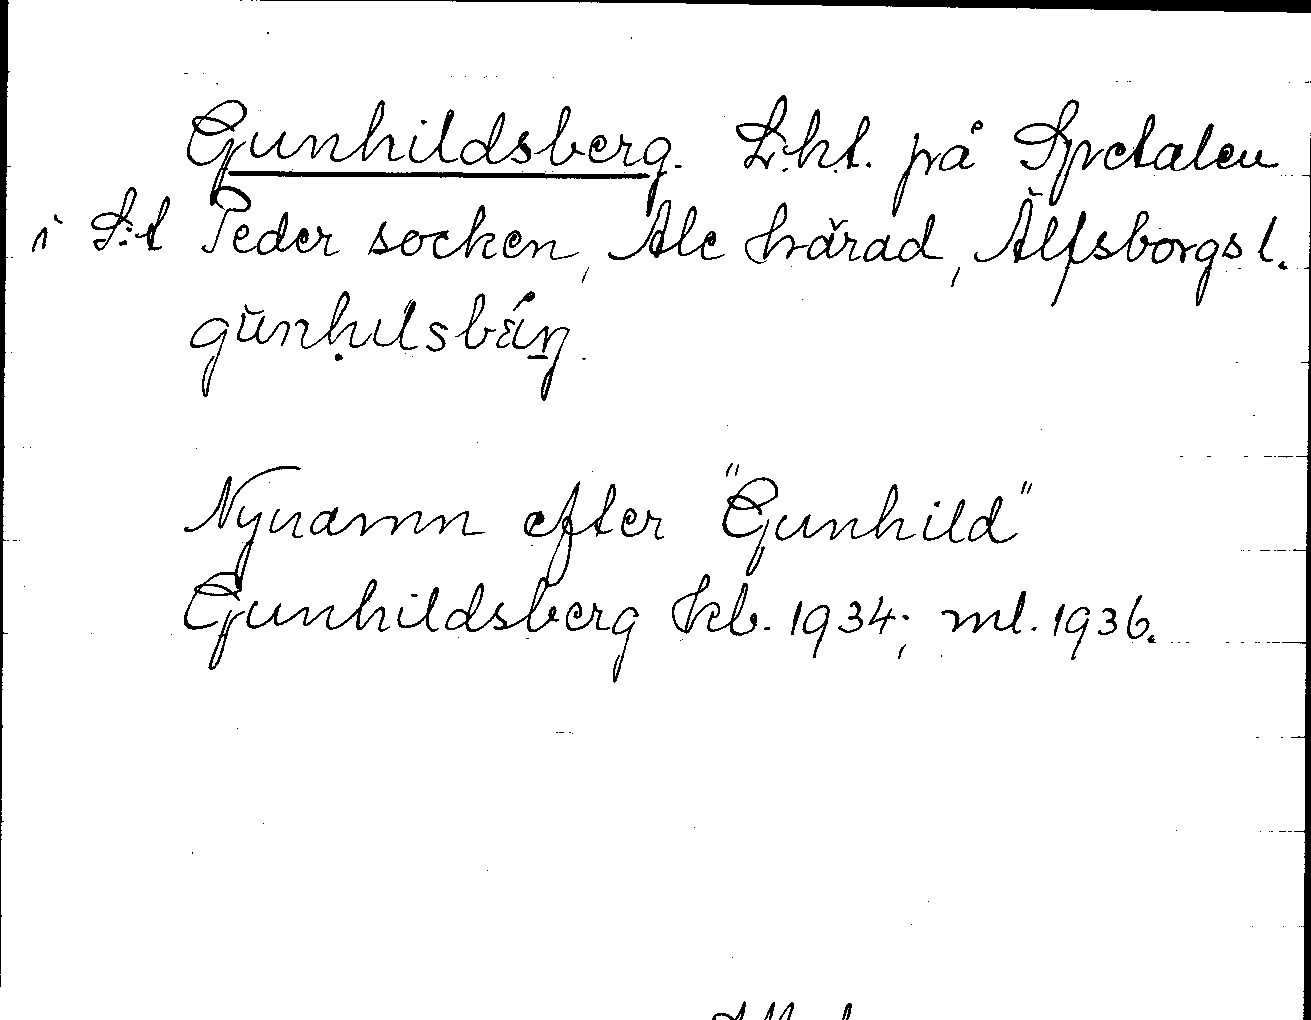 Gunhildsberg. L:ht. på Spetalen
i S:t Peder socken, Ale härad, Älfsborgs l.
Nynamn efter "Gunhild"
Gunhildsberg kb. 1934; ml. 1936.